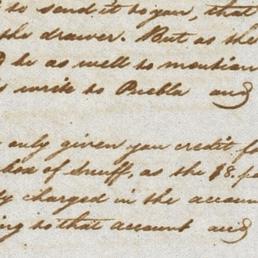 to send it to you, that
the drawer. But as the
be as well to mention
write to Puebla and
only given you credit f
box of snuff, as the $8. p
charged in the accoun
ing to that account and